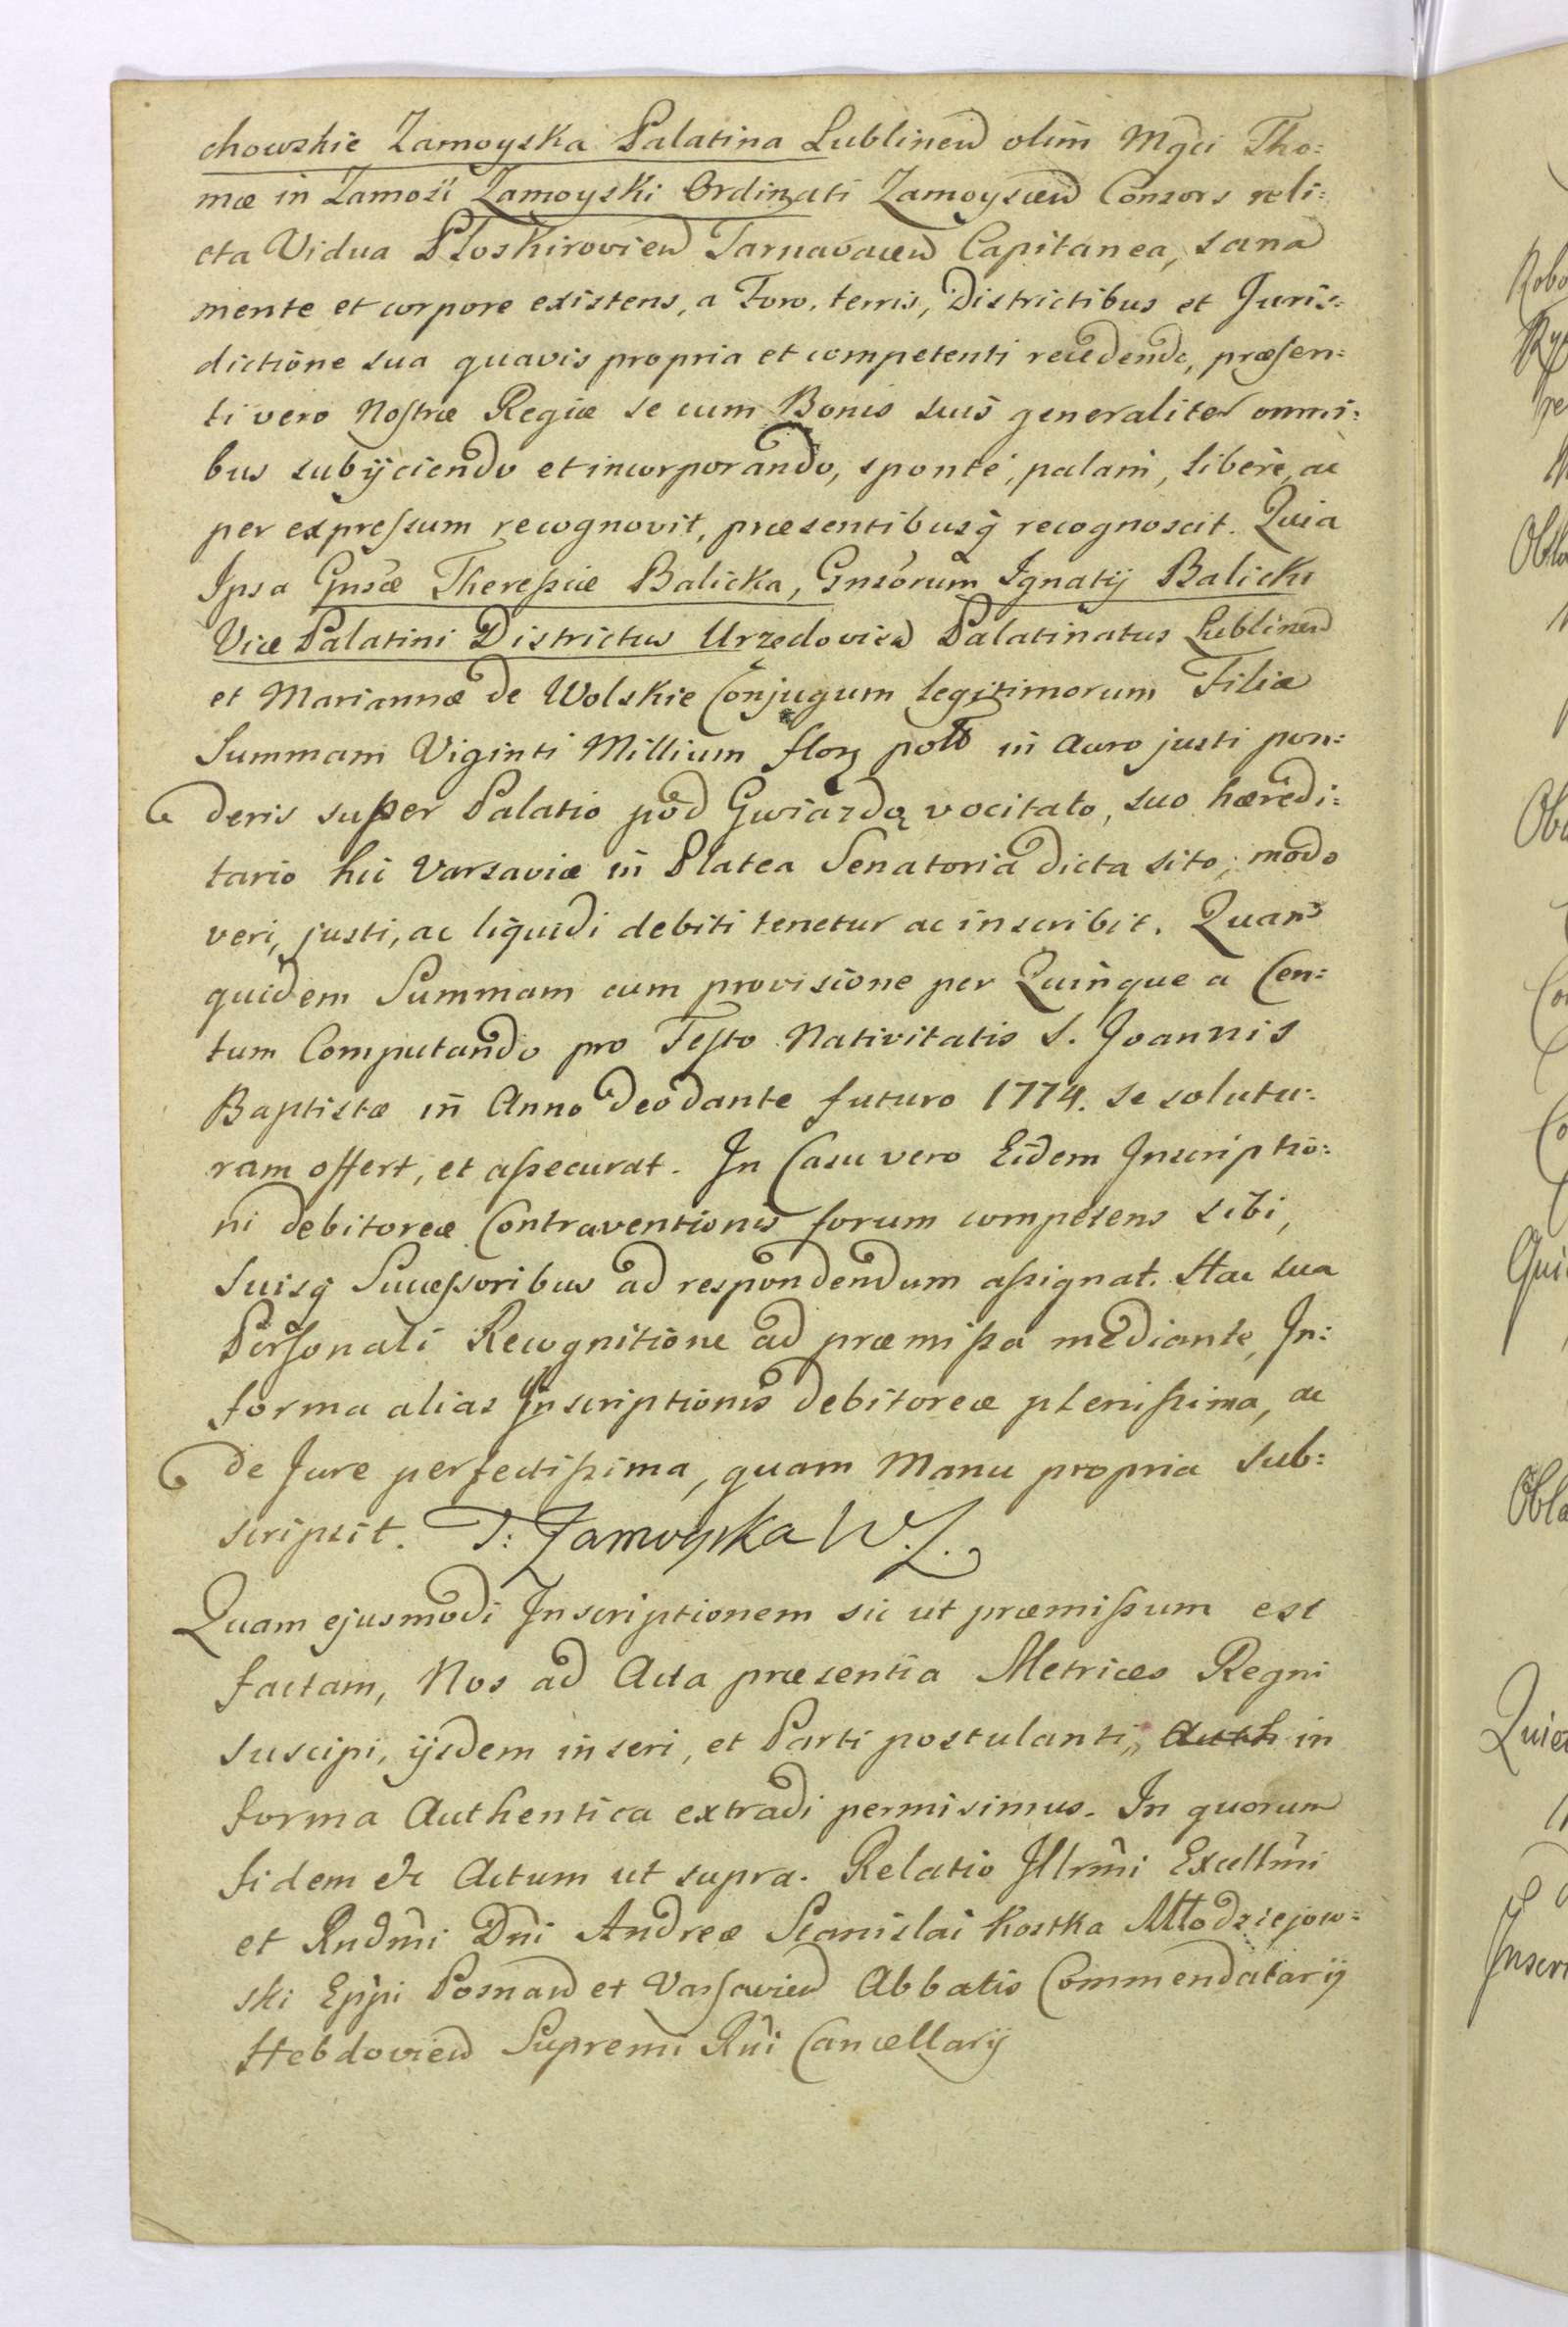 chowskie Zamoyska Palatina Lublinen olim Mgci Tho:
mæ in Zamosć Zamoyski Ordinati Zamoyscen Consors reli:
cta Vidua Ploskirovien Tarnavacen Capitanea, sana
mente et corpore existens, a Foro, terris, Districtibus et Juris:
dictione sua quavis propria et competenti recedendo, præsen:
ti vero Nostræ Regiæ se cum Bonis suis generaliter omni:
bus subijciendo et incorporando, sponte, palam, libere, ac
per expressum recognovit, præsentibusq recognoscit. Quia
Ipsa Gnsæ Theressiæ Balicka, Gnsorum Ignatij Balicki
Vice Palatini Districtus Urzędovien Palatinatus Lublinen
et Mariannæ de Wolskie Conjugum legitimorum Filiæ
Summam Viginti Millium flor pol in Auro justi pon:
deris super Palatio pod Gwiazdą vocitato, suo hæredi:
tario hic Varsaviæ in Platea Senatoria dicta sito, modo
veri, justi, ac liquidi debiti tenetur ac inscribit. Quam
quidem Summam cum provisione per Quinque a Cen:
tum Computando pro Festo Nativitatis S. Joannis
Baptistæ in Anno Deo dante futuro 1774. se solutu:
ram offert, et assecurat. In Casu vero Eidem Inscriptio:
ni debitoreæ Contraventionis forum competens sibi,
Suisq Successoribus ad respondendum assignat. Hac sua
Personali Recognitione ad præmissa mediante, In:
forma alias Inscriptionis debitoreæ plenissima, ac
de Jure perfectissima, quam Manu propria sub:
scripsit. T: Zamoyska W. L.
Quam ejusmodi Inscriptionem sic ut præmissum est
factam, Nos ad Acta præsentia Metrices Regni
suscipi, ijsdem inseri, et Parti postulanti, Auth in
forma Authentica extradi permisimus. In quorum
fidem &c Actum ut supra. Relatio Illrmi Excellmi
et Rndmi Dni Andreæ Stanislai Kostka Młodziejow:
ski Eppi Posnan et Varsavien Abbatis Commendatarij
Hebdovien Supremi Rni Cancellarij